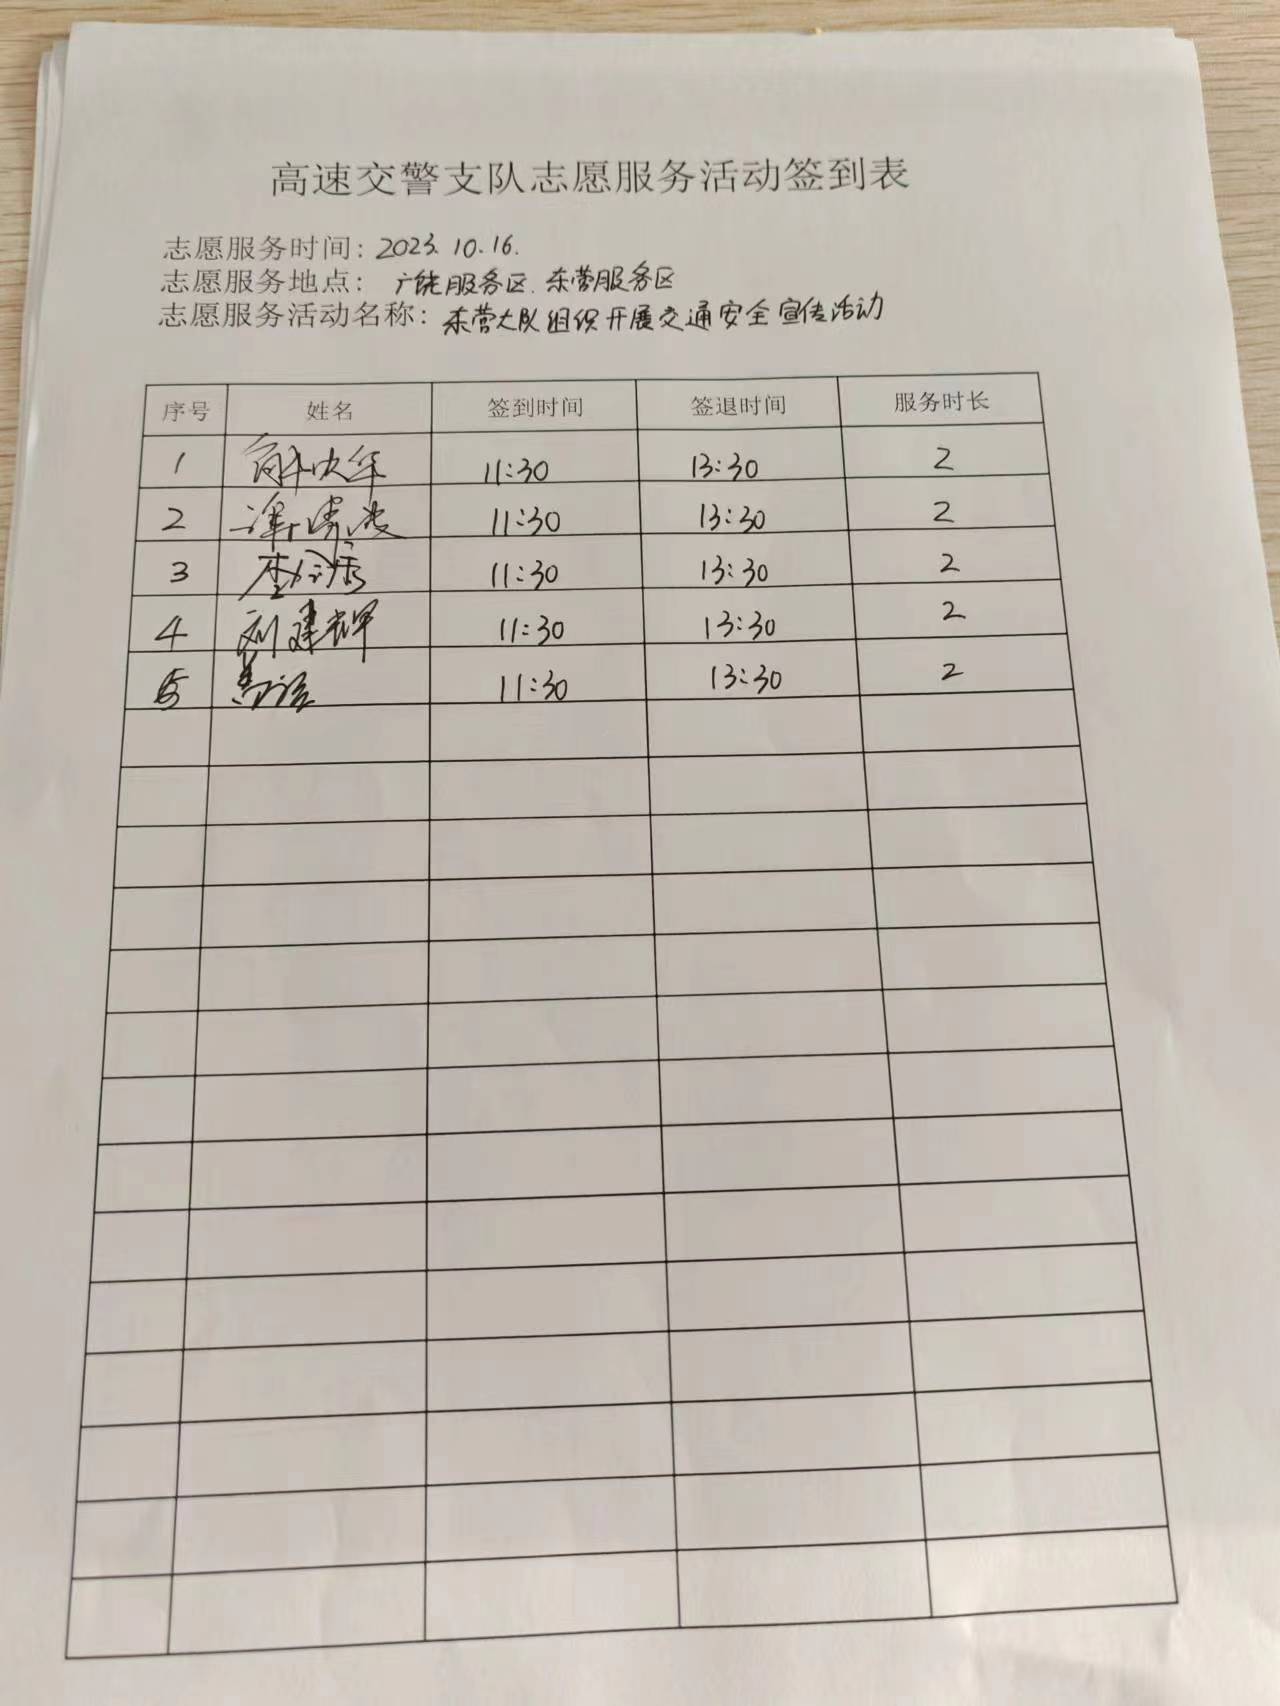 高速交警支队志愿服务活动签到表
志愿服务时间: 2023.10.16.
志愿服务地点: 广饶服务区、东营服务区
志愿服务活动名称: 东营大队组织开展交通安全宣传活动
序号 姓名 签到时间 签退时间 服务时长
1 11:30 13:30 2
2 11:30 13:30 2
3 11:30 13:30 2
4 刘建辉 11:30 13:30 2
5 11:30 13:30 2